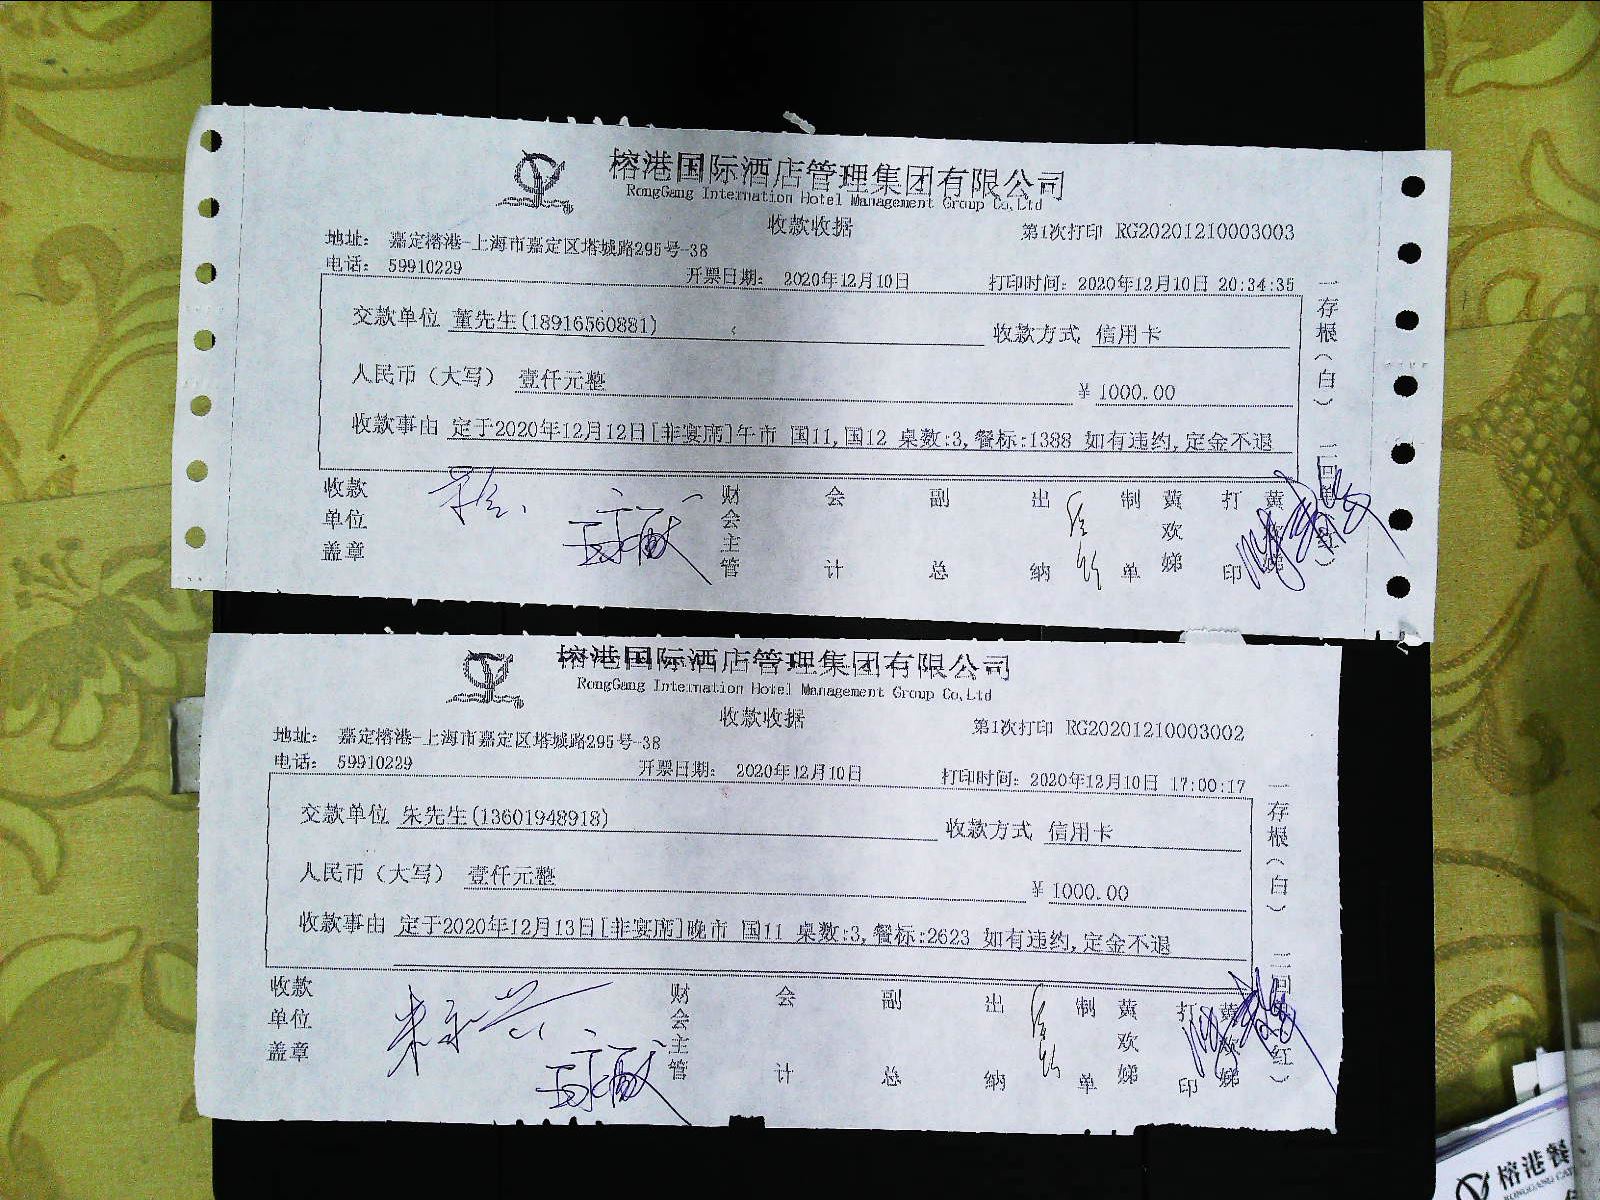 榕港国际酒店管理集团有限公司
RongGang Internation Hotel Management Group Co,Ltd
收款收据
第1次打印 RG20201210003003
地址： 嘉定榕港-上海市嘉定区塔城路295号-38
电话： 59910229
开票日期： 2020年12月10日
打印时间：2020年12月10日 20:34:35
交款单位 董先生(18916560881)
收款方式 信用卡
人民币（大写） 壹仟元整
¥ 1000.00
收款事由 定于2020年12月12日[非宴席]午市 国11,国12 桌数:3,餐标:1388 如有违约,定金不退
一存根（白） 二回单（红）
收款单位盖章
财会主管
会计
副总
出纳
制单
黄欢娣
打印
黄欢娣
榕港国际酒店管理集团有限公司
RongGang Internation Hotel Management Group Co,Ltd
收款收据
第1次打印 RG20201210003002
地址： 嘉定榕港-上海市嘉定区塔城路295号-38
电话： 59910229
开票日期： 2020年12月10日
打印时间：2020年12月10日 17:00:17
交款单位 朱先生(13601948918)
收款方式 信用卡
人民币（大写） 壹仟元整
¥ 1000.00
收款事由 定于2020年12月13日[非宴席]晚市 国11 桌数:3,餐标:2623 如有违约,定金不退
一存根（白） 二回单（红）
收款单位盖章
财会主管
会计
副总
出纳
制单
黄欢娣
打印
黄欢娣
榕港餐